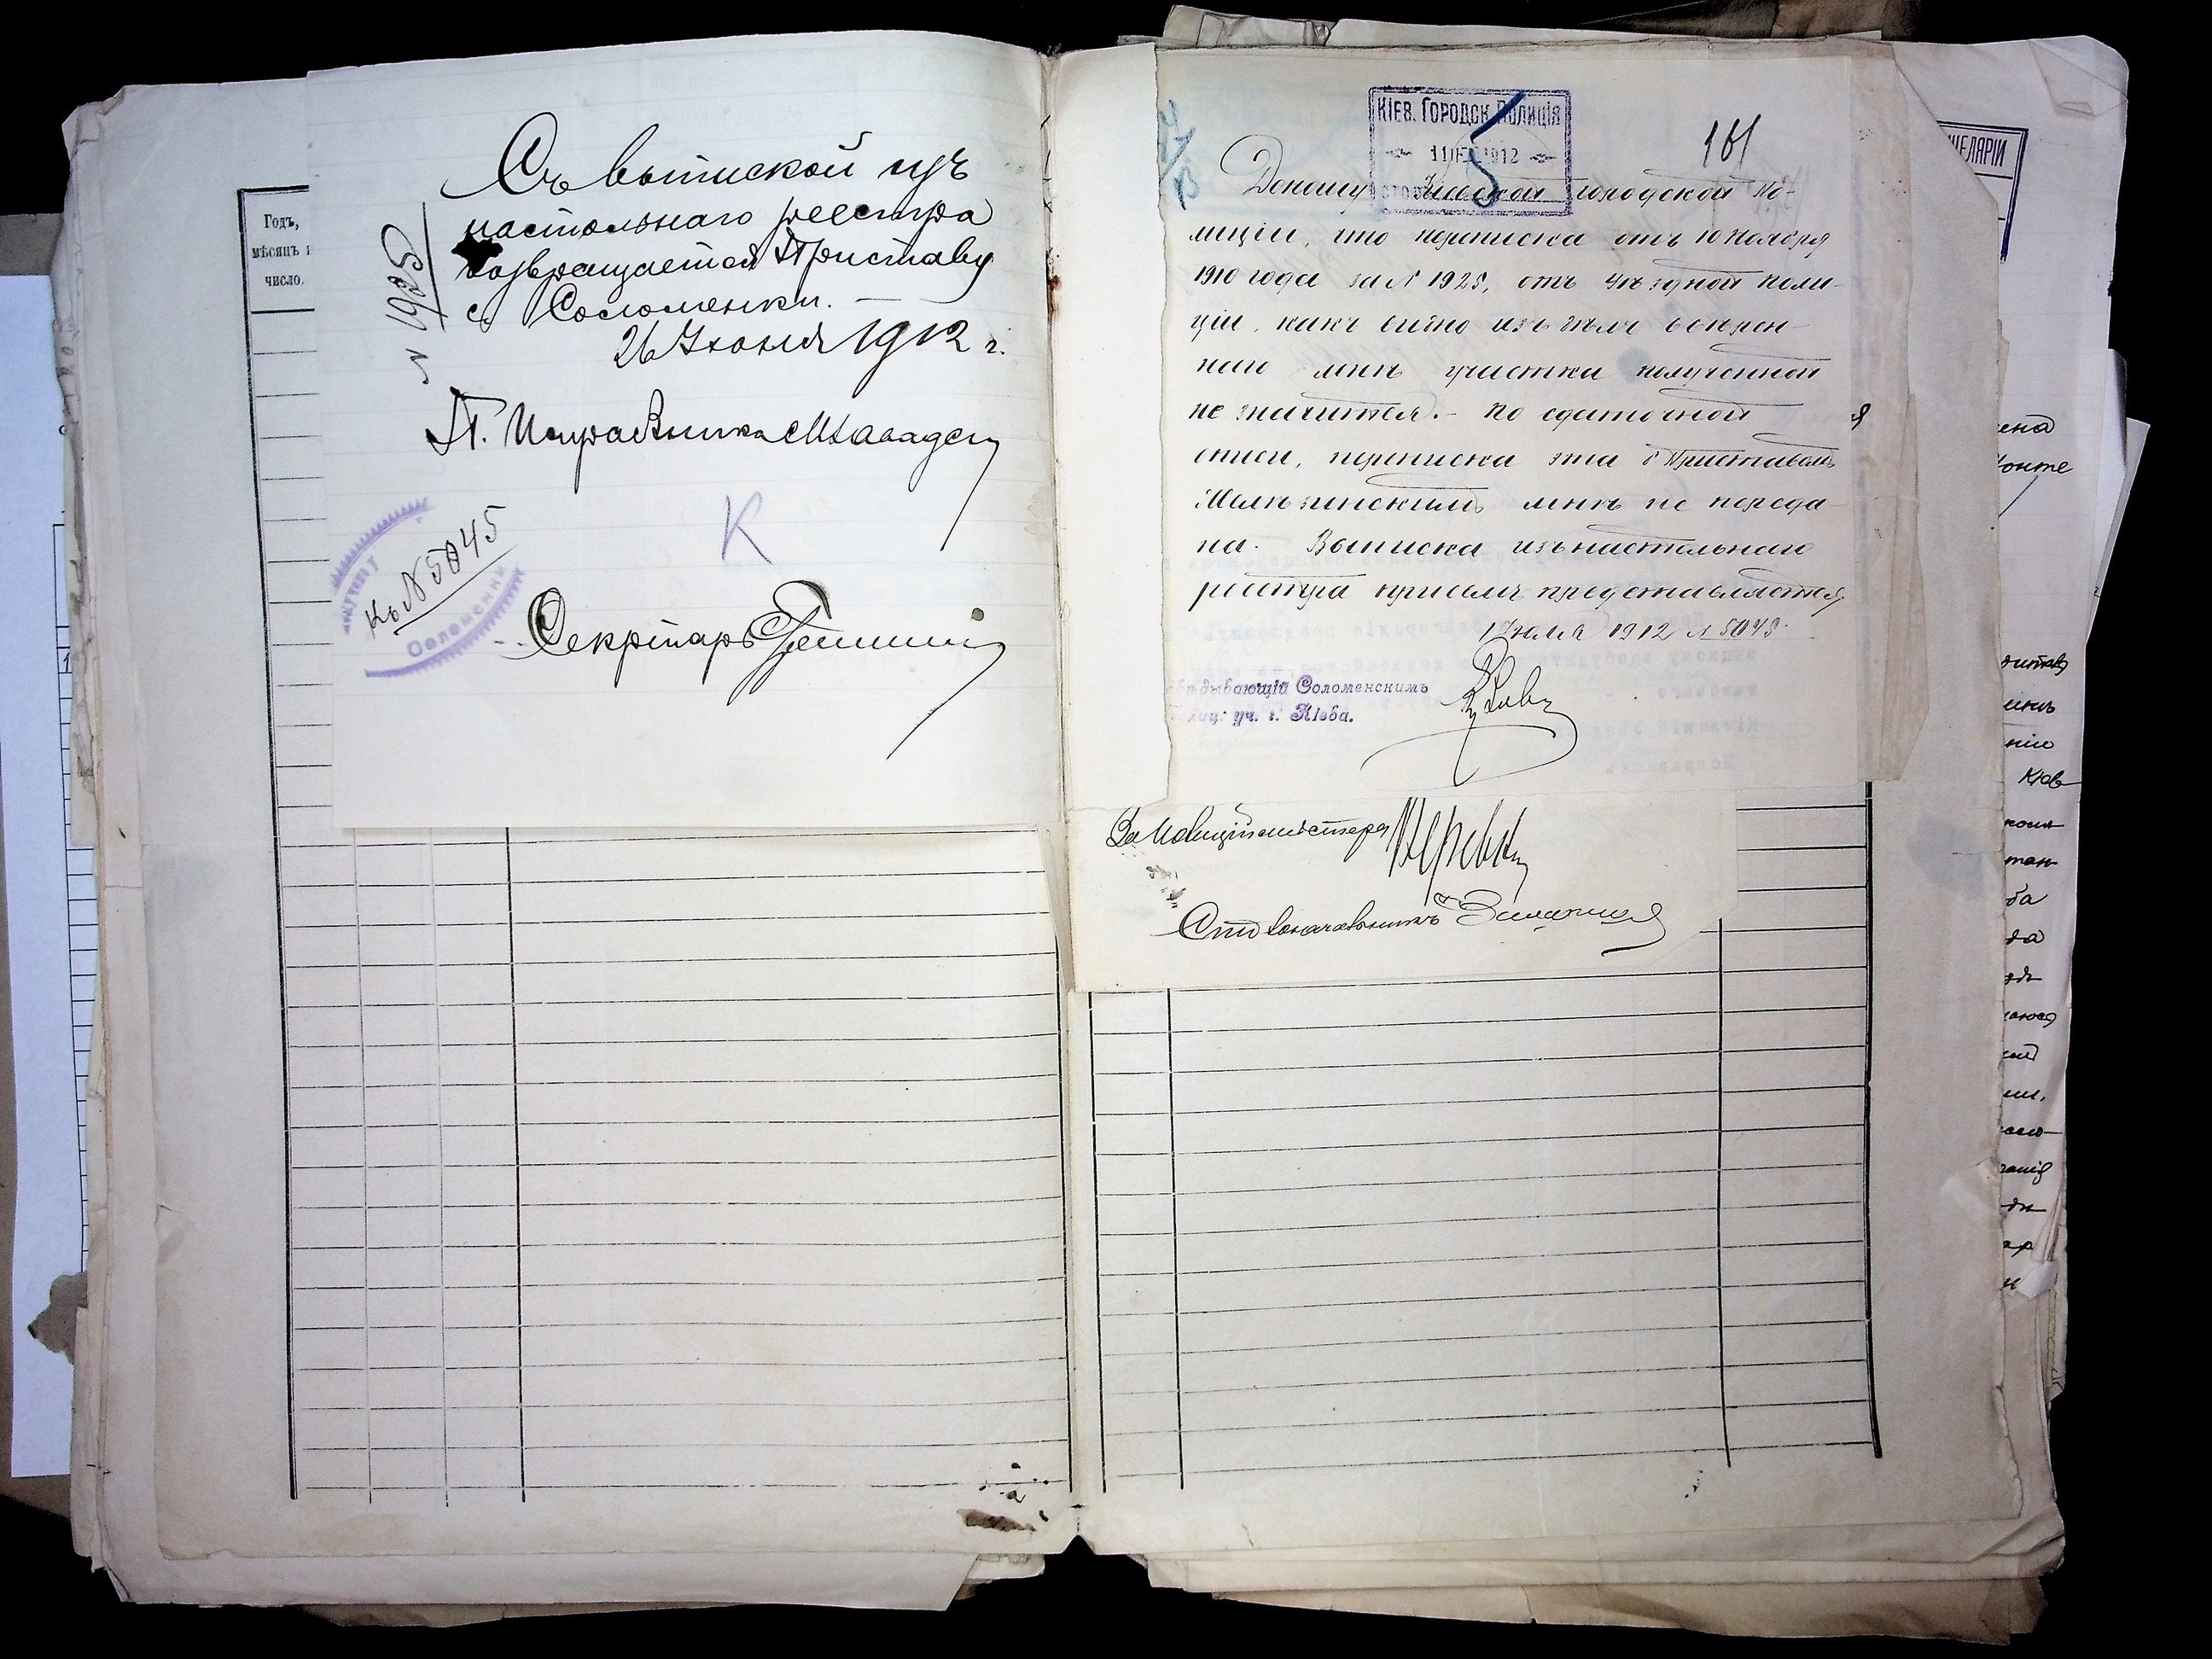 Годъ,
мѣсяцъ и
число.
№ 1925
Съ выпиской изъ
настольнаго реестра
возвращается Приставу
с. Соломенки.
26 Июня 1912 г.
П. Исправника
К
Къ № 5045
Соломенки
Секретарь
КІЕВ. ГОРОДСК. ПОЛИЦІЯ
1912
161
Доношу Кіевской городской По-
лиціи, что переписка отъ 10 Ноября
1910 года за № 1925, отъ уѣздной поли-
ціи, какъ видно изъ дѣлъ ввѣрен-
наго мнѣ участка полученной
не значится. - По сдаточной
описи, переписка эта б. Приставомъ
мнѣ не переда-
на. Выписка изъ настольнаго
реестра присемъ представляется
1 Июля 1912 № 5045.
Завѣдывающій Соломенскимъ
полиц. уч. г. Кіева.
За Полиціймейстера
Столоначальникъ